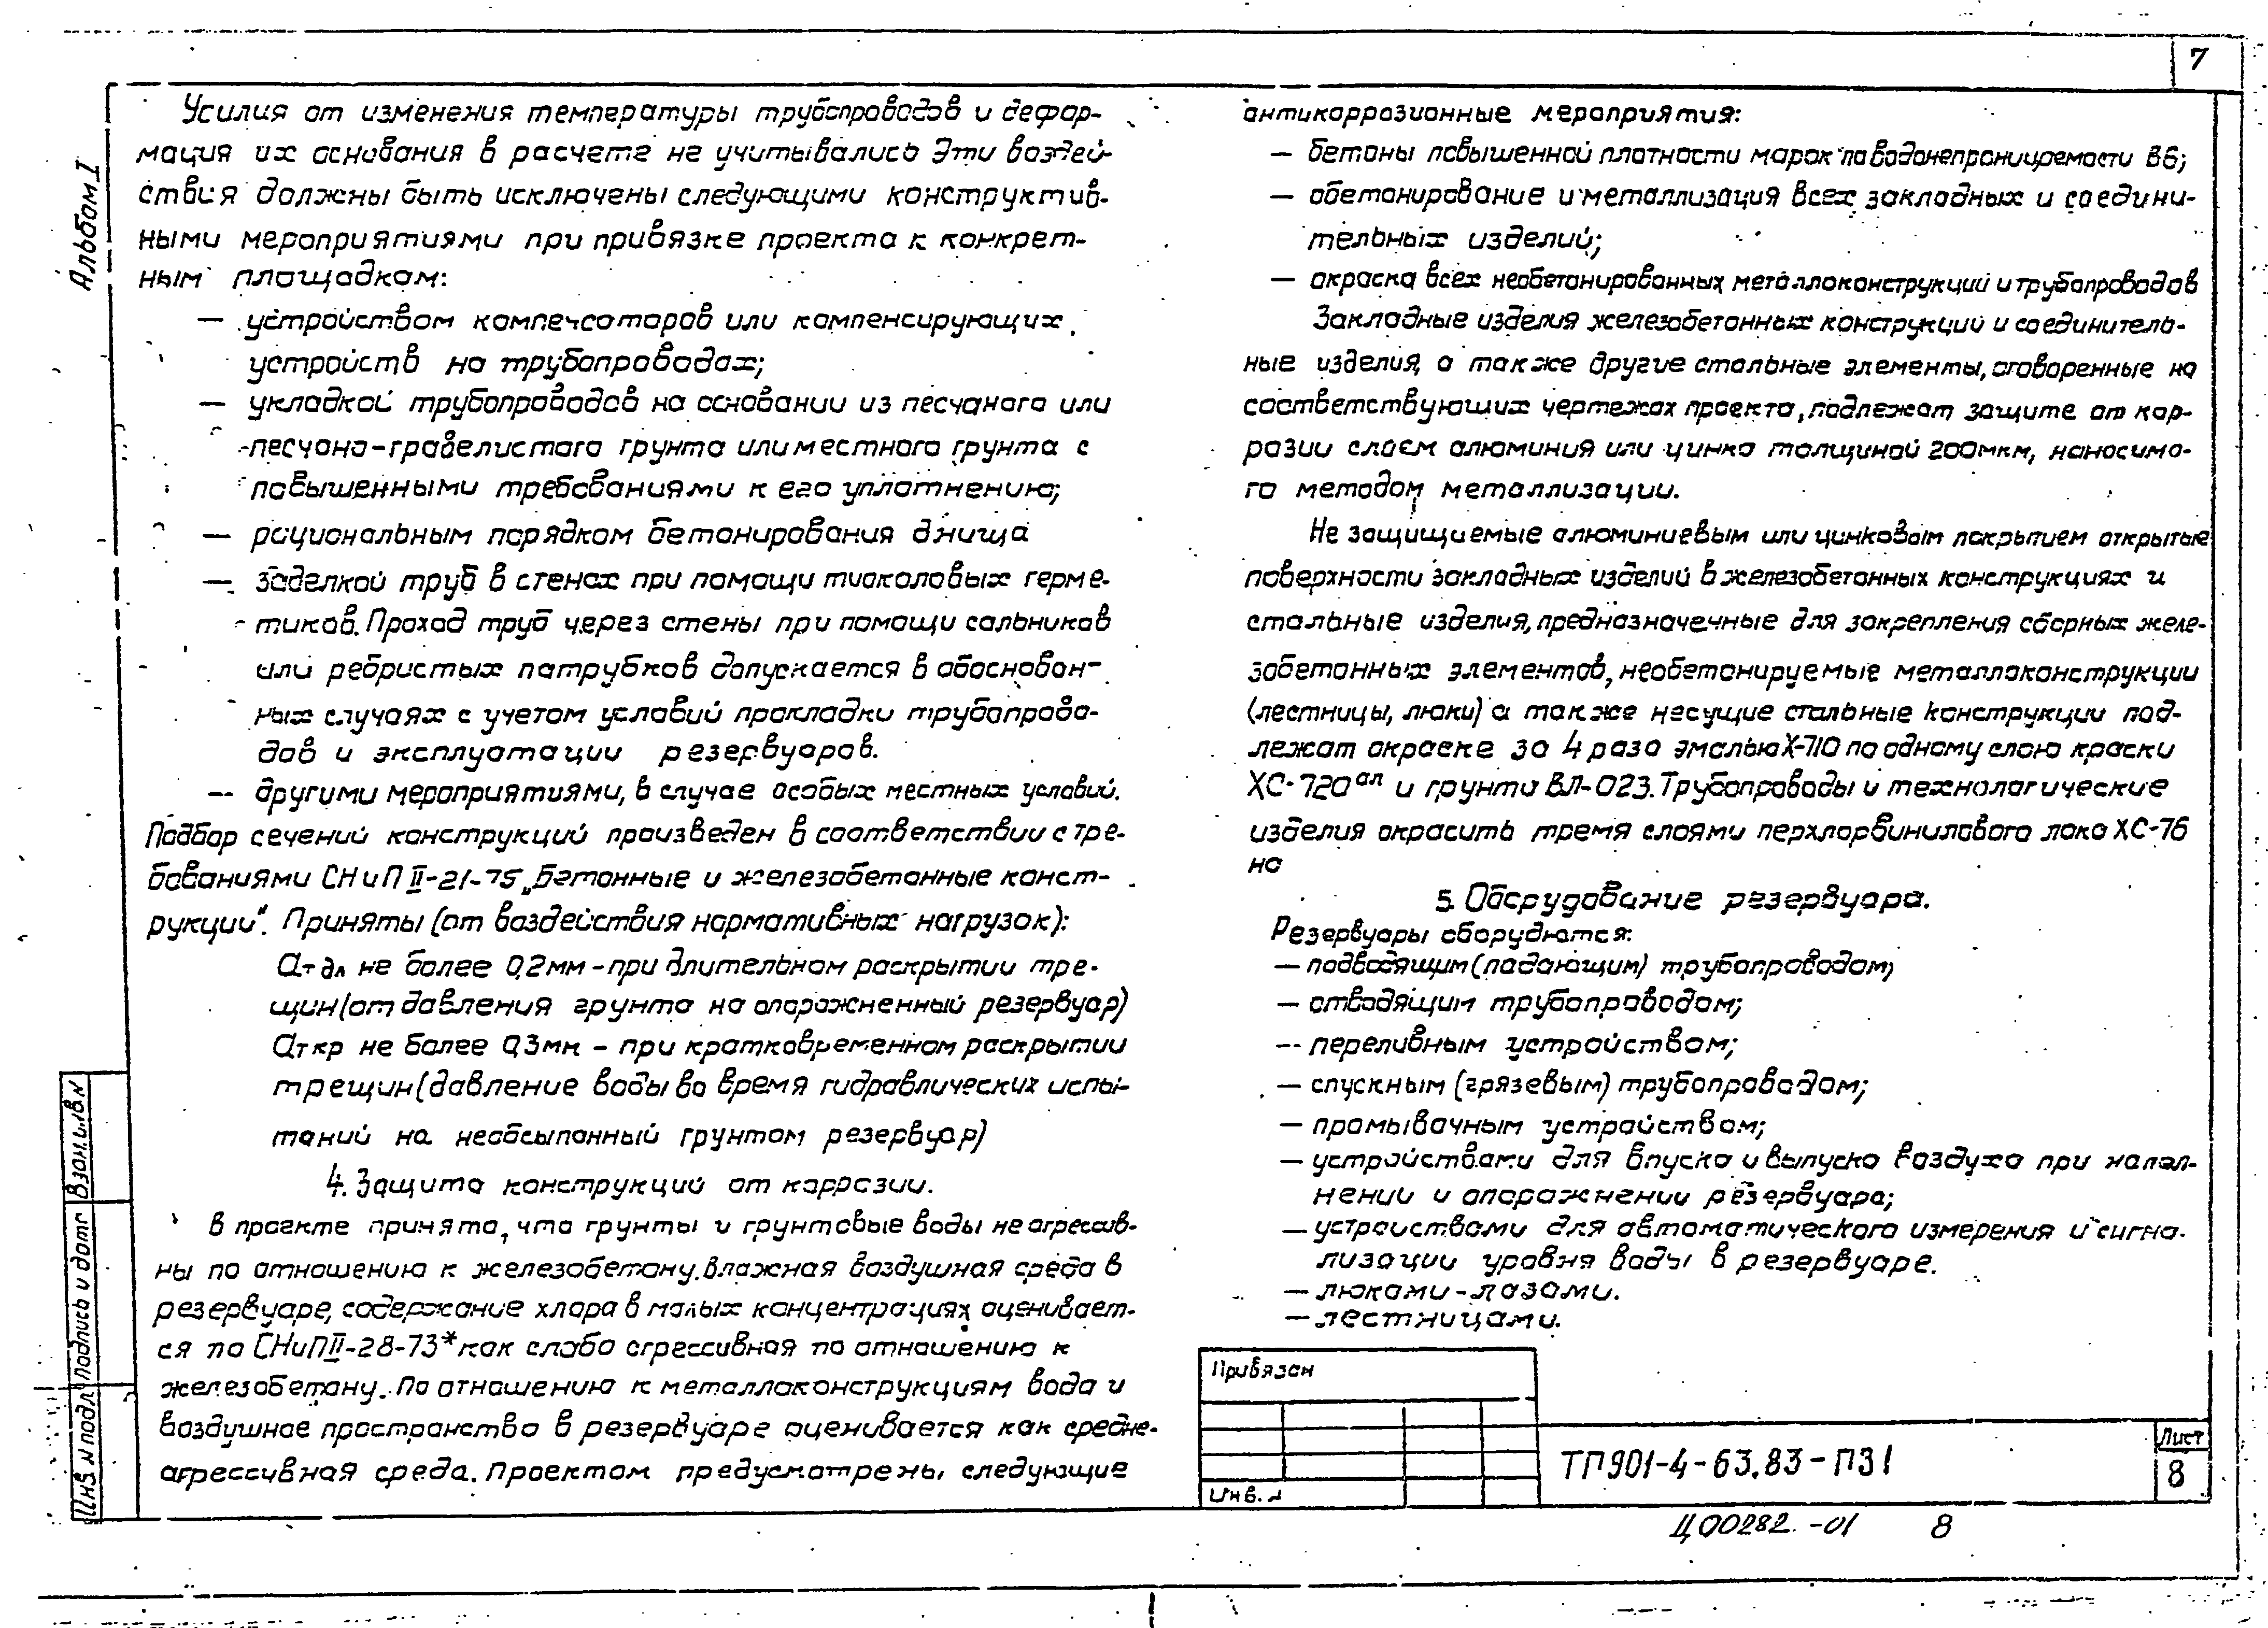 7
Альбом I
Усилия от изменения температуры трубопроводов и дефор-
мация их основания в расчете не учитывались Эти воздей-
ствия должны быть исключены следующими конструктив-
ными мероприятиями при привязке проекта к конкрет-
ным площадкам:
— устройством компенсаторов или компенсирующих
устройств на трубопроводах;
— укладкой трубопроводов на основании из песчаного или
песчано-гравелистого грунта или местного грунта с
повышенными требованиями к его уплотнению;
— рациональным порядком бетонирования днища
— заделкой труб в стенах при помощи тиоколовых герме-
тиков. Проход труб через стены при помощи сальников
или ребристых патрубков допускается в обоснован-
ных случаях с учетом условий прокладки трубопрово-
дов и эксплуатации резервуаров.
— другими мероприятиями, в случае особых местных условий.
Подбор сечений конструкций произведен в соответствии с тре-
бованиями СНиП II-21-75 „Бетонные и железобетонные конст-
рукции". Приняты (от воздействия нормативных нагрузок):
Ат дл не более 0,2мм - при длительном раскрытии тре-
щин (от давления грунта на опорожненный резервуар)
Ат кр не более 0,3мм - при кратковременном раскрытии
трещин (давление воды во время гидравлических испы-
таний на необсыпанный грунтом резервуар)
4. Защита конструкций от коррозии.
В проекте принято, что грунты и грунтовые воды не агрессив-
ны по отношению к железобетону. Влажная воздушная среда в
резервуаре, содержание хлора в малых концентрациях оценивает-
ся по СНиП II-28-73* как слабо агрессивная по отношению к
железобетону. По отношению к металлоконструкциям вода и
воздушное пространство в резервуаре оценивается как средне-
агрессивная среда. Проектом предусмотрены следующие
антикоррозионные мероприятия:
— бетоны повышенной плотности марок по водонепроницаемости В6;
— обетонирование и металлизация всех закладных и соедини-
тельных изделий;
— окраска всех необетонированных металлоконструкций и трубопроводов
Закладные изделия железобетонных конструкций и соединитель-
ные изделия, а также другие стальные элементы, оговоренные на
соответствующих чертежах проекта, подлежат защите от кор-
розии слоем алюминия или цинка толщиной 200мкм, наносимо-
го методом металлизации.
Не защищаемые алюминиевым или цинковым покрытием открытые
поверхности закладных изделий в железобетонных конструкциях и
стальные изделия, предназначенные для закрепления сборных желе-
зобетонных элементов, необетонируемые металлоконструкции
(лестницы, люки) а также несущие стальные конструкции под-
лежат окраске за 4 раза эмалью Х-710 по одному слою краски
ХС-720ал и грунта ВЛ-023. Трубопроводы и технологические
изделия окрасить тремя слоями перхлорвинилового лака ХС-76
на
5. Оборудование резервуара.
Резервуары оборудуются:
— подводящим (подающим) трубопроводом;
— отводящим трубопроводом;
— переливным устройством;
— спускным (грязевым) трубопроводом;
— промывочным устройством;
— устройствами для впуска и выпуска воздуха при напол-
нении и опорожнении резервуара;
— устройствами для автоматического измерения и сигна-
лизации уровня воды в резервуаре.
— люками-лазами.
— лестницами.
Взам. инв. N
Подпись и дата
Инв. N подл
Привязан
Инв. N
ТП 901-4-63.83-ПЗ1
Лист
8
Ц00282.-01 8